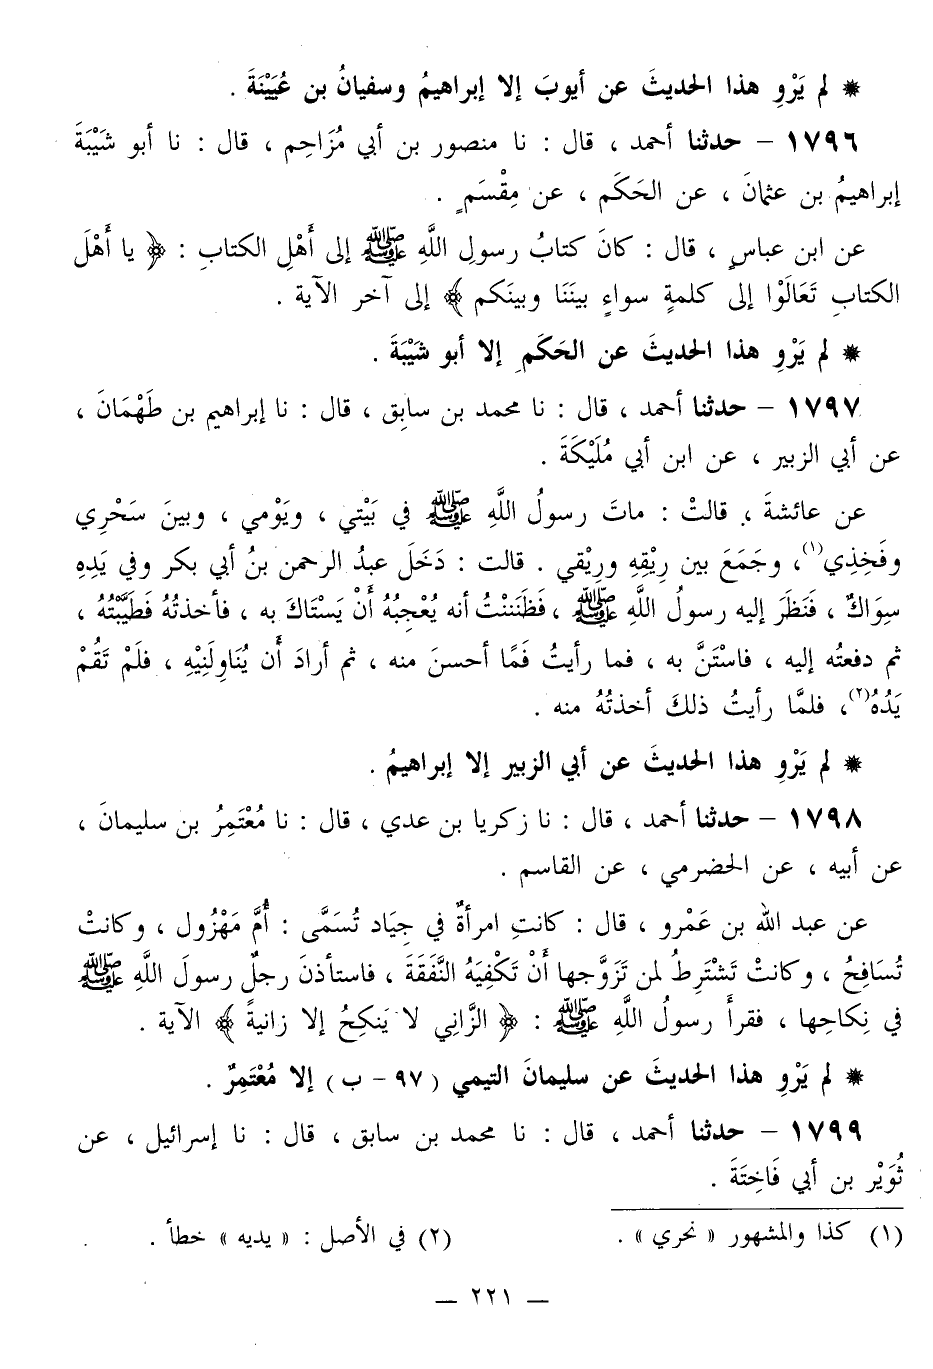 * لم يَرْوِ هذا الحديثَ عن أيوبَ إلا إبراهيمُ وسفيانُ بن عُيَيْنَةَ .
١٧٩٦ - حدثنا أحمد ، قال : نا منصور بن أبي مُزَاحِم ، قال : نا أبو شَيْبَةَ
إبراهيمُ بن عثمانَ ، عن الحَكَم ، عن مِقْسَمٍ .
عن ابن عباسٍ ، قال : كانَ كتابُ رسولِ اللَّهِ ﷺ إلى أَهْلِ الكتابِ : ﴿ يا أَهْلَ
الكتابِ تَعَالَوْا إلى كلمةٍ سواءٍ بينَنَا وبينَكم ﴾ إلى آخر الآية .
* لم يَرْوِ هذا الحديثَ عن الحَكَمِ إلا أبو شَيْبَةَ .
١٧٩٧ - حدثنا أحمد ، قال : نا محمد بن سابق ، قال : نا إبراهيم بن طَهْمَانَ ،
عن أبي الزبير ، عن ابن أبي مُلَيْكَةَ .
عن عائشةَ ، قالتْ : ماتَ رسولُ اللَّهِ ﷺ في بَيْتي ، ويَوْمي ، وبينَ سَحْرِي
وفَخِذِي(١)، وجَمَعَ بين رِيْقِهِ ورِيْقي . قالت : دَخَلَ عبدُ الرحمن بنُ أبي بكر وفي يَدِهِ
سِوَاكٌ ، فَنَظَرَ إليه رسولُ اللَّهِ ﷺ ، فَظَنَنْتُ أنه يُعْجِبُهُ أَنْ يَسْتَاكَ به ، فأخذتُهُ فَطَيَّبْتُهُ ،
ثم دفعتُه إليه ، فاسْتَنَّ به ، فما رأيتُ فَمًا أحسنَ منه ، ثم أرادَ أَن يُنَاوِلَنِيْهِ ، فلَمْ تَقُمْ
يَدُهُ(٢)، فلمَّا رأيتُ ذلكَ أخذتُهُ منه .
* لم يَرْوِ هذا الحديثَ عن أبي الزبير إلا إبراهيمُ .
١٧٩٨ - حدثنا أحمد ، قال : نا زكريا بن عدي ، قال : نا مُعْتَمِرُ بن سليمانَ ،
عن أبيه ، عن الحضرمي ، عن القاسم .
عن عبد الله بن عَمْرو ، قال : كانتِ امرأةٌ في جِيَاد تُسَمَّى : أُمَّ مَهْزُول ، وكانتْ
تُسَافِحُ ، وكانتْ تَشْتَرِطُ لمن تَزَوَّجها أَنْ تَكْفِيَهُ النَّفَقَةَ ، فاستأذنَ رجلٌ رسولَ اللَّهِ ﷺ
في نِكاحِها ، فقرأَ رسولُ اللَّهِ ﷺ : ﴿ الزَّانِي لا يَنكِحُ إلا زانيةً ﴾ الآية .
* لم يَرْوِ هذا الحديثَ عن سليمانَ التيمي ( ٩٧ - ب ) إلا مُعْتَمِرٌ .
١٧٩٩ - حدثنا أحمد ، قال : نا محمد بن سابق ، قال : نا إسرائيل ، عن
ثُوَيْر بن أبي فَاخِتَةَ .
(١) كذا والمشهور « نحري » .
(٢) في الأصل : « يديه » خطأ .
— ٢٢١ —